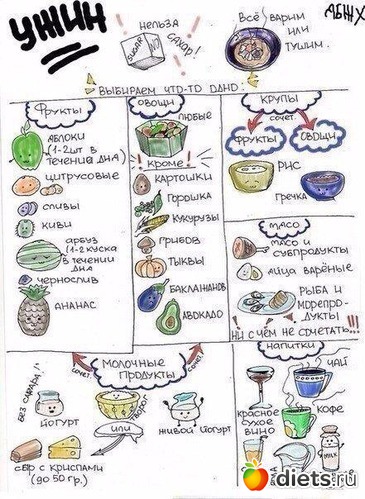 УЖИН
НЕЛЬЗА
САХАР!
SUGAR
NO
ВСЁ ВАРИМ
ИЛИ
ТУШИМ.
ВЫБИРАЕМ ЧТО-ТО ОДНО
ФРУКТЫ
ЯБЛОКИ
(1-2ШТ В
ТЕЧЕНИИ ДНА)
ЦИТРУСОВЫЕ
СЛИВЫ
КИВИ
АРБУЗ
(1-2 КУСКА
В ТЕЧЕНИИ
ДНА
ЧЕРНОСЛИВ
АНАНАС
ОВОЩИ
ЛЮБЫЕ
! КРОМЕ !
КАРТОШКИ
ГОРОШКА
КУКУРУЗЫ
ГРИБОВ
ТЫКВЫ
БАКЛАЖАНОВ
АВОКАДО
КРУПЫ
СОЧЕТ.
ФРУКТЫ
ОВОЩИ
РИС
ГРЕЧКА
МАСО
МАСО И
СУБПРОДУКТЫ
ЯЙЦА ВАРЁНЫЕ
РЫБА И
МОРЕПРО-
ДУКТЫ
НИ С ЧЕМ НЕ СОЧЕТАТЬ!!!
СОЧЕТ.
МОЛОЧНЫЕ
ПРОДУКТЫ
СОЧЕТ.
БЕЗ САХАРА!
ЙОГУРТ
ТВОРОГ
ИЛИ
ЖИВОЙ ЙОГУРТ
СЫР С КРИСПАМИ
(ДО 50 ГР.)
НАПИТКИ
ЧАЙ
КРАСНОЕ
СУХОЕ
ВИНО
КОФЕ
MILK
diets.ru